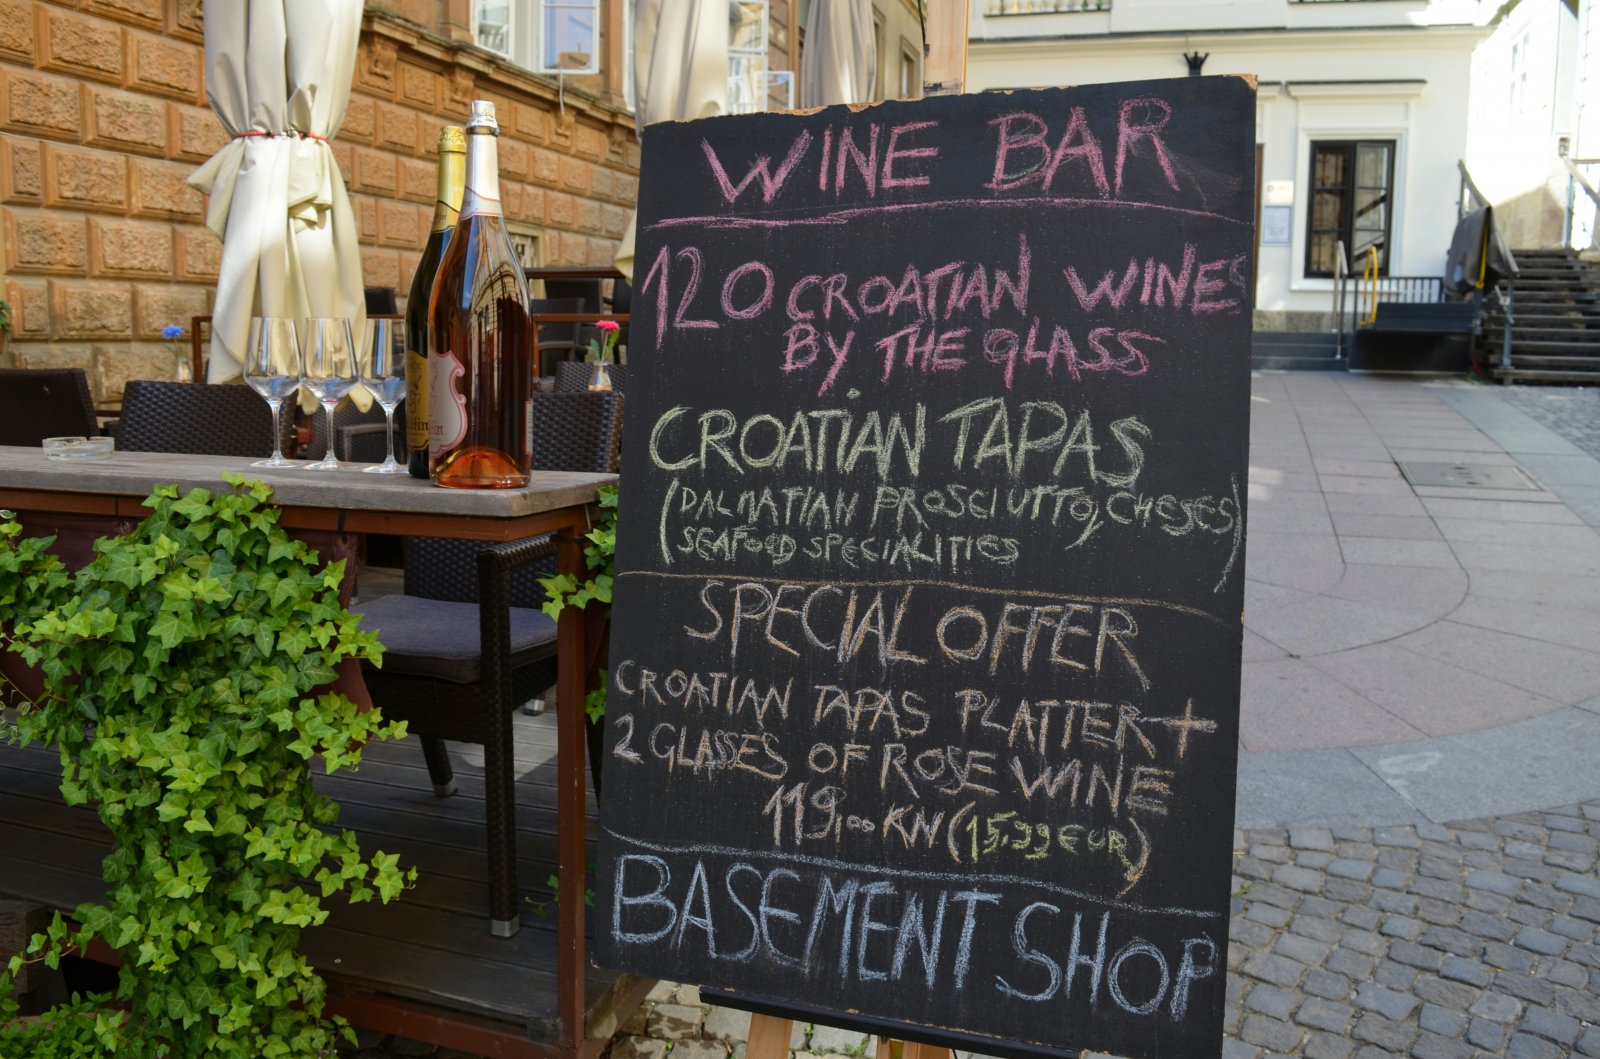 WINE BAR
120 CROATIAN WINES
BY THE GLASS
CROATIAN TAPAS
(DALMATIAN PROSCIUTTO, CHESES
SEAFOOD SPECIALITIES)
SPECIAL OFFER
CROATIAN TAPAS PLATTER +
2 GLASSES OF ROSE WINE
119,00 KN (15,99 EUR)
BASEMENT SHOP